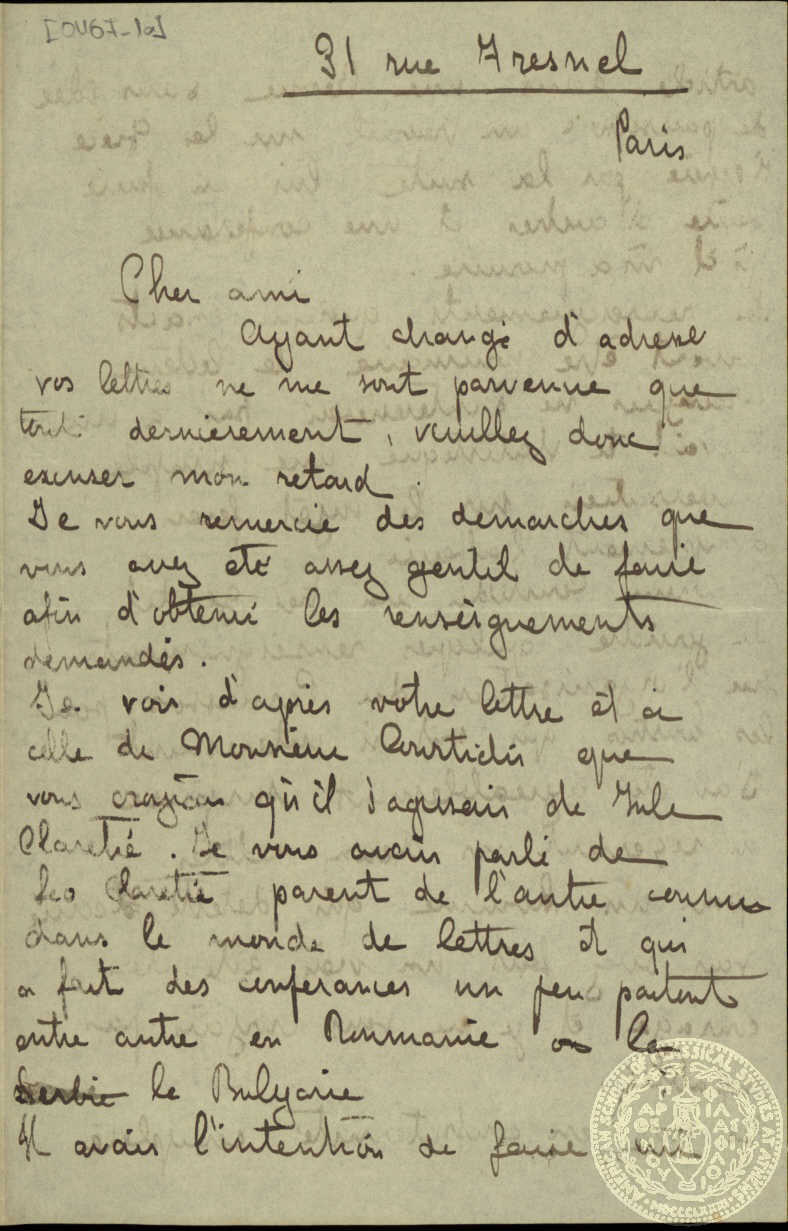 [OU67-1a]
31 rue Fresnel
Paris
Cher ami
Ayant changé d'adresse
vos lettres ne me sont parvenue que
tout dernierement, veuillez donc
excuser mon retard.
Je vous remercie des demarches que
vous avez eté assez gentil de faire
afin d'obtenir les renseignements
demandés.
Je vois d'après votre lettre et a
celle de Monsieur Courtidis que
vous croyiau qu'il s'agissais de Jule
Claretié. Je vous avais parlé de
Leo Claretie parent de l'autre connu
dans le monde de lettres et qui
a fait des conferances un peu partout
entre autre en Roumanie la
Serbie la Bulgarie
Il avais l'intention de faire un
AMERICAN SCHOOL OF CLASSICAL STUDIES AT ATHENS
MDCCCLXXXI